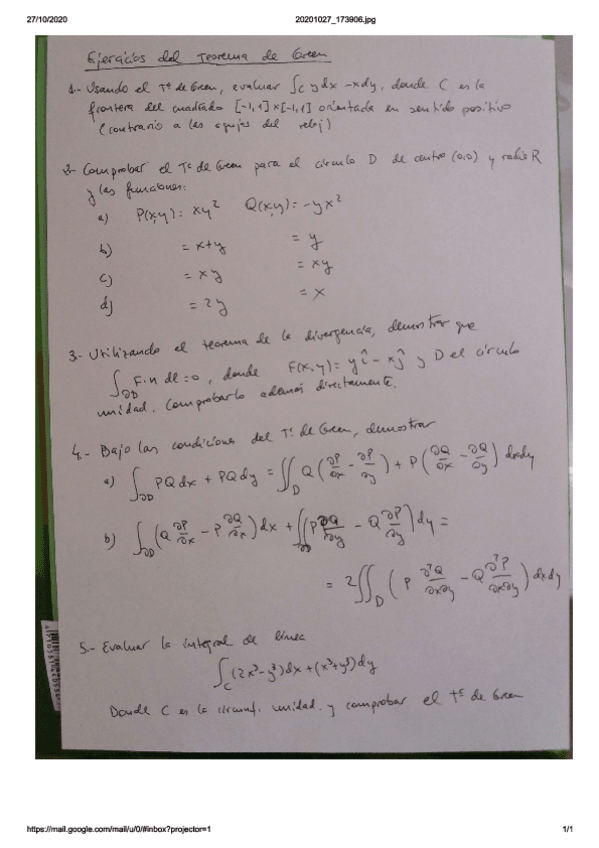 27/10/2020 20201027_173906.jpg
Ejercicios del Teorema de Green
1.- Usando el Tª de Green, evaluar ∫_C y dx - x dy, donde C es la
frontera del cuadrado [-1,1]×[-1,1] orientada en sentido positivo
(contrario a las agujas del reloj)
2- Comprobar el Tª de Green para el círculo D de centro (0,0) y radio R
y las funciones:
a) P(x,y) = xy² Q(x,y) = -yx²
b) = x+y = y
c) = xy = xy
d) = 2y = x
3.- Utilizando el teorema de la divergencia, demostrar que
∫_∂D F·n dl = 0, donde F(x,y) = y î - x ĵ y D el círculo
unidad. Comprobarlo además directamente.
4.- Bajo las condiciones del Tª de Green, demostrar
a) ∫_∂D PQ dx + PQ dy = ∬_D Q(∂P/∂x - ∂P/∂y) + P(∂Q/∂x - ∂Q/∂y) dxdy
b) ∫_∂D (Q ∂P/∂x - P ∂Q/∂x) dx + ∬_∂D (P ∂Q/∂y - Q ∂P/∂y) dy =
= 2∬_D (P ∂²Q/∂x∂y - Q ∂²P/∂x∂y) dxdy
5.- Evaluar la integral de línea
∫_C (2x³-y³) dx + (x³+y³) dy
Donde C es la circunf. unidad. y comprobar el Tª de Green
https://mail.google.com/mail/u/0/#inbox?projector=1 1/1